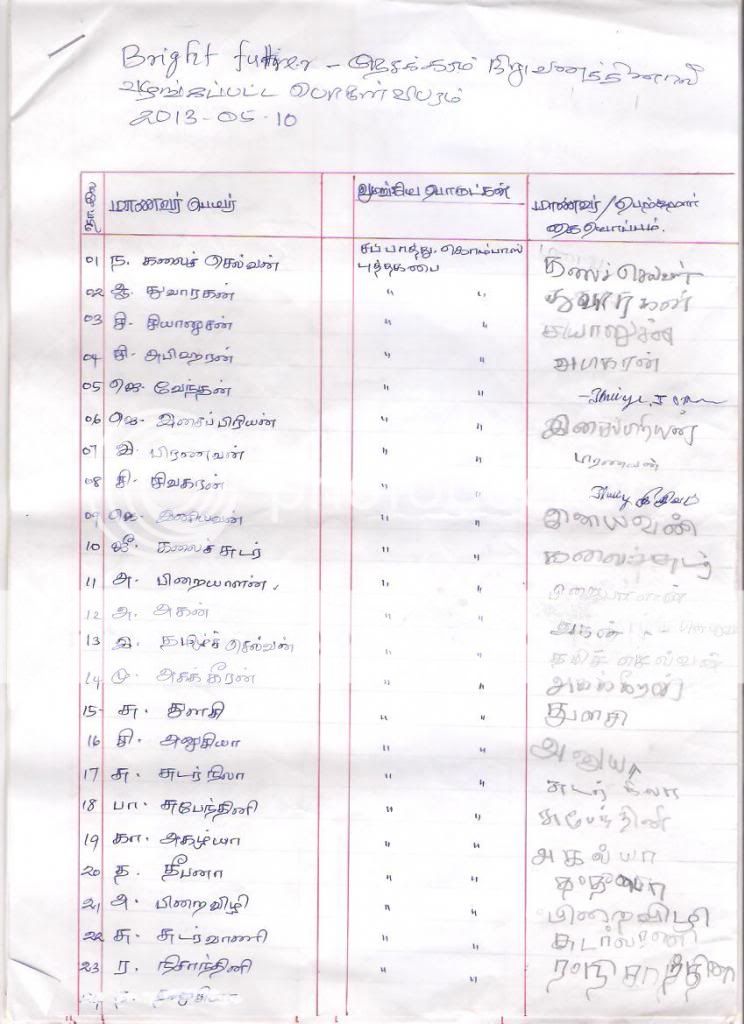 Bright future - நேசக்கரம் நிறுவனத்தினால்
வழங்கப்பட்ட பொருள் விபரம்
2013-05-10
தொ.இல மாணவர் பெயர் வழங்கிய பொருட்கள் மாணவர்/பெற்றோர் கையொப்பம்.
01 ந. கலைச் செல்வன் சப்பாத்து, கொம்பாஸ் புத்தகபை கலைச் செல்வன்
02 துவாரகன் " " துவாரகன்
03 சி. சியானுசன் " " சியானுசன்
04 சி. அபிஹரன் " " அபிகரன்
05 ஜெ. வேந்தன் " "
06 ஜெ. இசைப்பிரியன் " " இசைப்பிரியன்
07 இ. பிரணவன் " " பிரணவன்
08 சி. சிவகரன் " "
09 ஜெ. இனியவன் " " இனியவன்
10 ஜீ. கலைச் சுடர் " " கலைச்சுடர்
11 அ. பிறையாளன். " "
12 அ. அகன் " " அகன்
13 இ. தமிழ்ச் செல்வன் " " தமிழ்ச் செல்வன்
14 மு. அசக்கீரன் " " அசக்கீரன்
15 சு. துளசி " " துளசி
16 சி. அனுசியா " " அனுயா
17 சு. சுடர் நிலா " " சுடர் நிலா
18 பா. சுபேந்தினி " " சுபேந்தினி
19 கா. அகழ்யா " " அகல்யா
20 த. தீபனா " "
21 அ. பிறைவிழி " " பிறைவிழி
22 சு. சுடர்வாணி " " சுடர்வாணி
23 ர. நிசாந்தினி " " ர.நிசாந்தினி